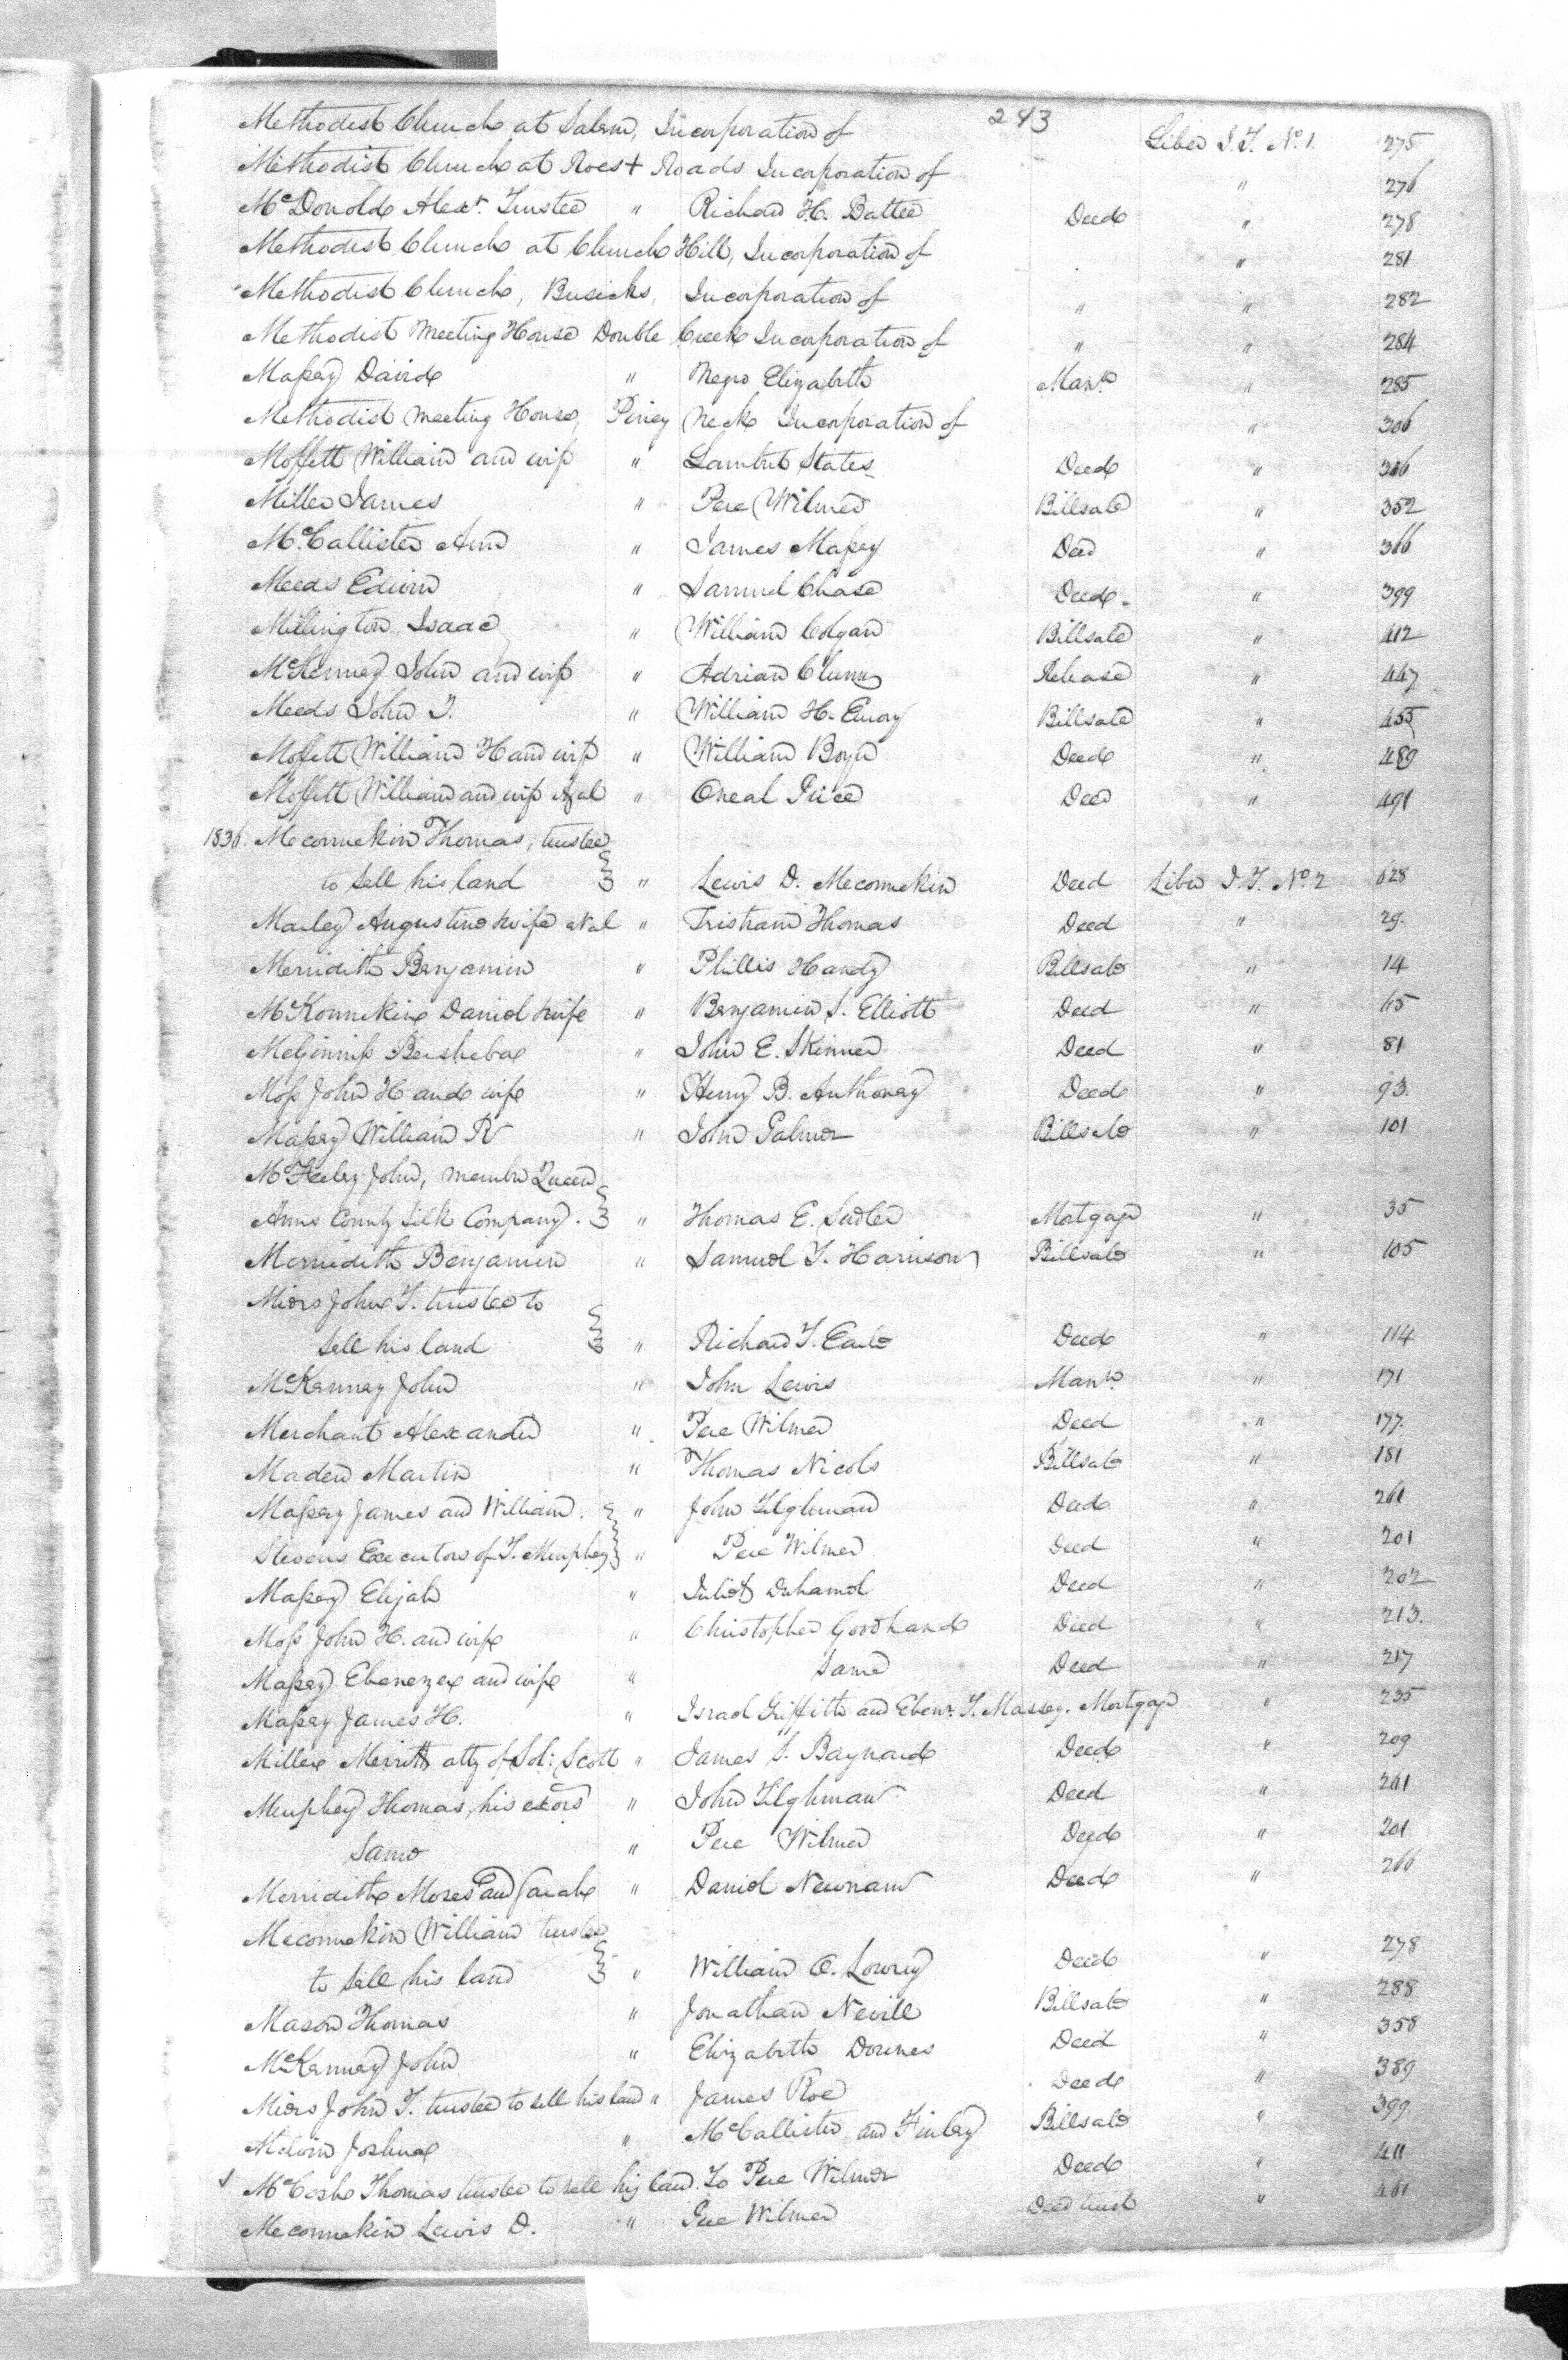 243
Methodist Church at Salem, Incorporation of Liber J.T. No. 1. 275
Methodist Church at Roes + Roads Incorporation of " 276
McDonold Alexr. Trustee " Richard H. Battee Deed " 278
Methodist Church at Church Hill, Incorporation of " 281
Methodist Church, Busicks, Incorporation of " " 282
Methodist Meeting House Double Creek Incorporation of " " 284
Massey David " Negro Elizabeth Mann. " 285
Methodist Meeting House, Piney Neck Incorporation of " 306
Moffett William and wife " Lambert States Deed " 306
Miller James " Pere Wilmer Billsale " 352
McCallister Ann " James Massey Deed " 366
Meeds Edwin " Samuel Chase Deed " 399
Millington Isaac " William Colgan Billsale " 412
McKenney John and wife " Adrian Clunn Release " 447
Meeds John T. " William H. Emory Billsale " 455
Moffett William H and wife " William Boyer Deed " 489
Moffett William and wife et al " Oneal Price Deed " 491
1836. Meconnekin Thomas, trustee
to sell his land " Lewis D. Meconnekin Deed Liber J.T. No. 2 628
Augustine & wife et al " Tristram Thomas Deed " 29.
Merridith Benjamin " Phillis Handy Billsale " 14
McKonnekine Daniel & wife " Benjamin S. Elliott Deed " 65
McGinniss Bershebae " John E. Skinner Deed " 81
Moss John H and wife " Henry B. Anthoney Deed " 93.
Massey William R " John Palmer Billsale " 101
McFeeley John, member Queen
Anns County Silk Company. " Thomas E. Sudler Mortgage " 35
Merridith Benjamin " Samuel T. Harrison Billsale " 105
Miers John T. trustee to
sell his land " Richard T. Earle Deed " 114
McKenney John " John Lewis Mann. " 171
Merchant Alexander " Pere Wilmer Deed " 177.
Maden Martin " Thomas Nicols Billsale " 181
Massey James and William. " John Tilghman Deed " 261
Stevens Executors of T. Murphey " Pere Wilmer Deed " 201
Massey Elijah " Juliet Duhamel Deed " 202
Moss John H. and wife " Christopher Goodhand Deed " 213.
Massey Ebenezer and wife " Same Deed " 217
Massey James H. " Israel Griffith and Ebenr. T. Massey. Mortgage " 235
Miller Merritt atty of Sol: Scott " James S. Baynard Deed " 209
Murphey Thomas, his exors " John Tilghman Deed " 261
Same " Pere Wilmer Deed " 201
Merridith Moses and Sarah " Daniel Newnam Deed " 266
Meconnekin William trustee
to sell his land " William O. Lowrey Deed " 278
Mason Thomas " Jonathan Nevill Billsale " 288
McKenney John " Elizabeth Downes Deed " 358
Miers John T. trustee to sell his land " James Roe Deed " 389
Melvin Joshua " McCallister and Finley Billsale " 399.
McCosh Thomas trustee to sell his land. To Pere Wilmer Deed " 411
Meconnekin Lewis D. " Pere Wilmer Deed trust " 461